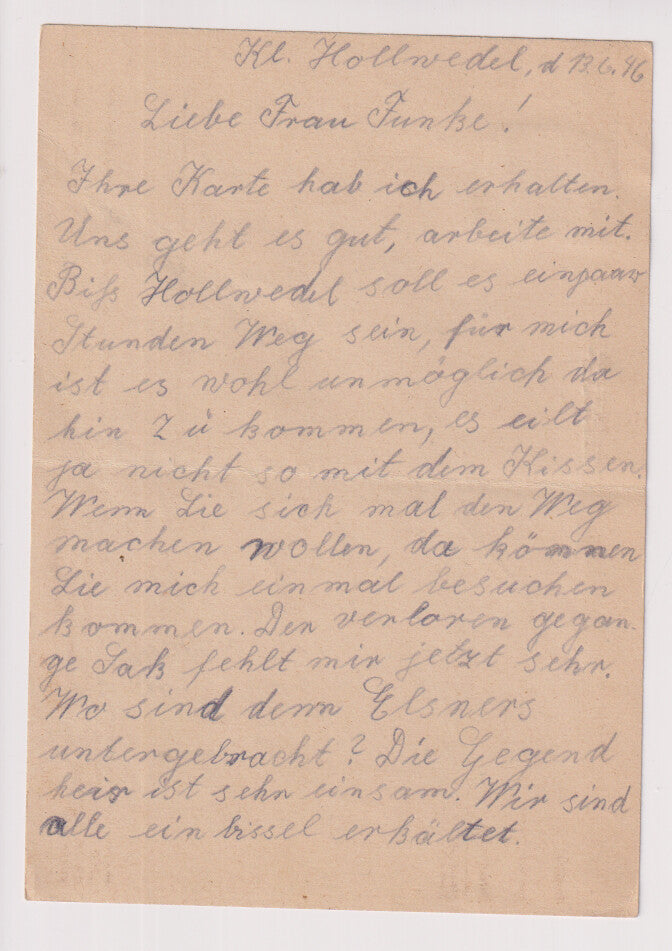 Kl. Hollwedel, d 13.6.46
Liebe Frau Funke!
Ihre Karte hab ich erhalten.
Uns geht es gut, arbeite mit.
Biſs Hollwedel soll es einpaar
Stunden Weg sein, für mich
ist es wohl unmöglich da
hin zu kommen, es eilt
ja nicht so mit dem Kissen.
Wenn Sie sich mal den Weg
machen wollen, da können
Sie mich einmal besuchen
kommen. Der verloren gegan-
ge Sak fehlt mir jetzt sehr.
Wo sind denn Elsners
untergebracht? Die Gegend
heir ist sehr einsam. Wir sind
alle ein bissel erkältet.